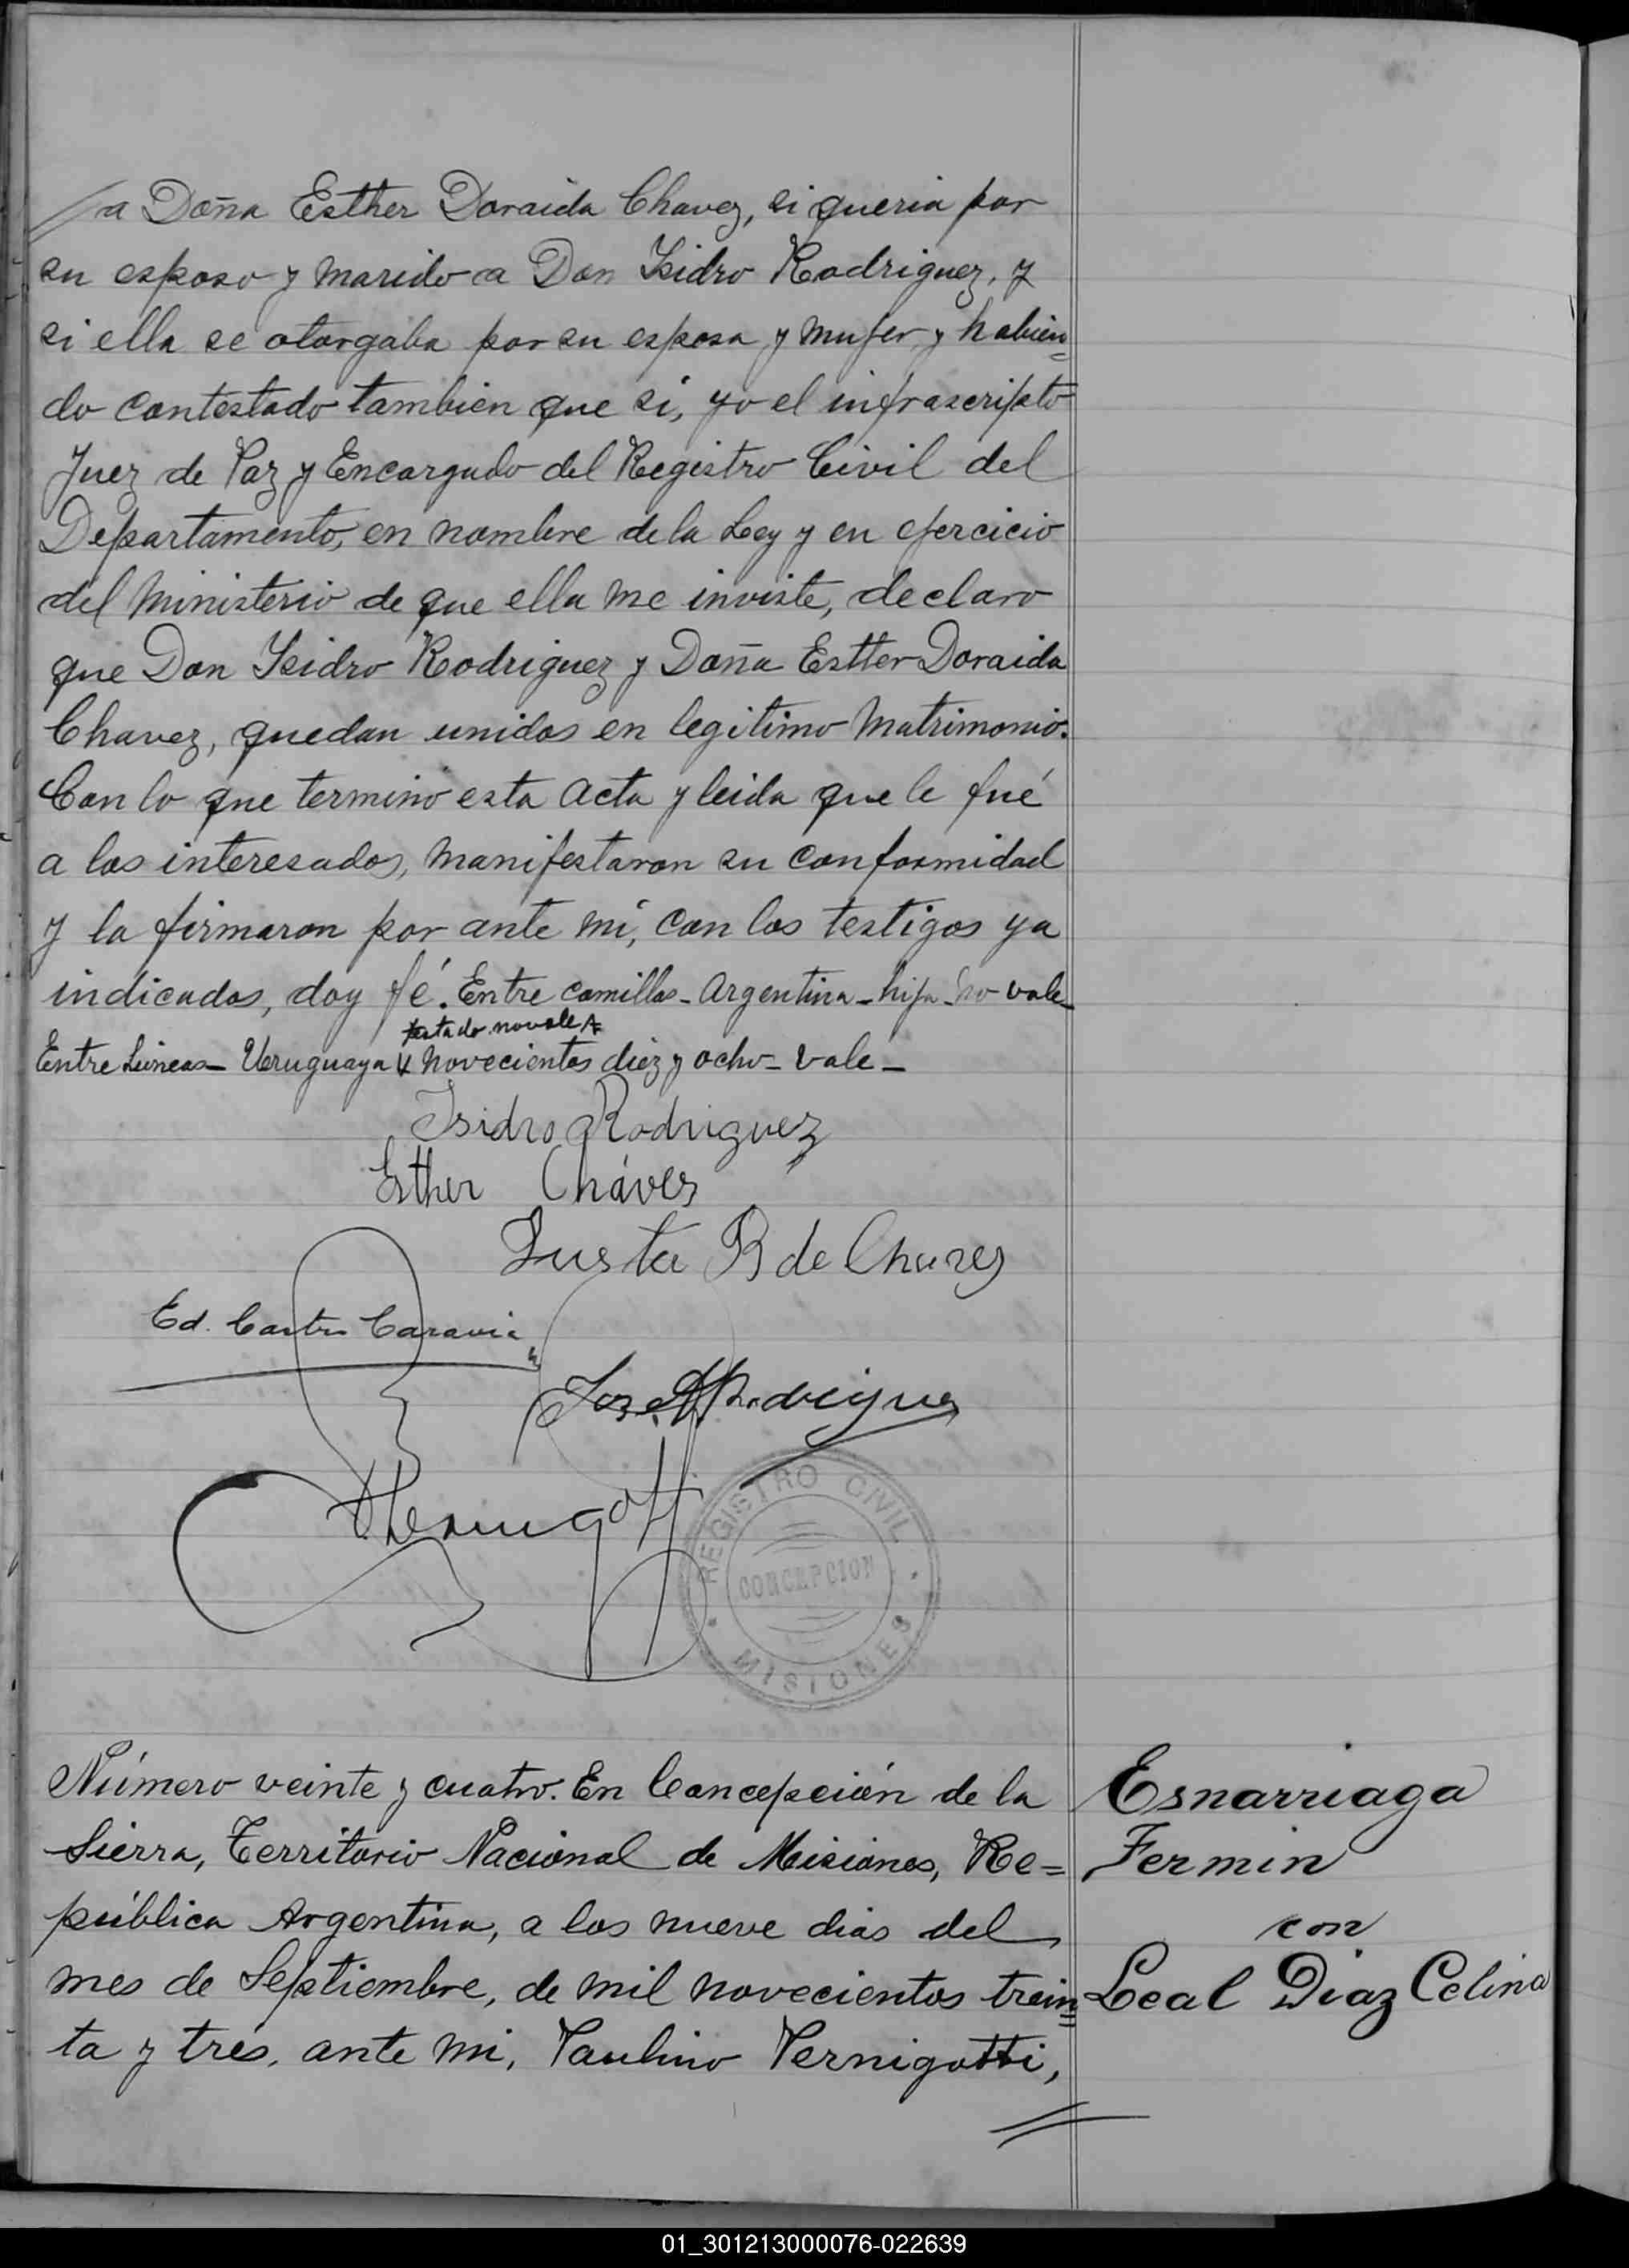 a Doña Esther Doraida Chavez, si queria por
su esposo y marido a Don Isidro Rodriguez, y
si ella se otorgaba por su esposa y mujer, y habien=
do contestado tambien que si, yo el infrascripto
Juez de Paz y Encargado del Registro Civil del
Departamento, en nombre de la Ley y en ejercicio
del Ministerio de que ella me inviste, declaro
que Don Isidro Rodriguez y Doña Estter Doraida
Chavez, quedan unidos en legitimo Matrimonio.
Con lo que terminó esta Acta y leida que le fué
a los interesados, manifestaron su conformidad
y la firmaron por ante mi, con los testigos ya
indicados, doy fé. Entre comillas - Argentina - hija - no vale
testado no vale
Entre Lineas - Uruguaya y novecientos diez y ocho - vale -
Isidro Rodriguez
Esther Cháves
Justa R de Chavez
Ed. Castro Caravia
José A Rodriguez
PVernigotti
REGISTRO CIVIL
CONCEPCION
MISIONES
Número veinte y cuatro. En Concepción de la
Sierra, Territorio Nacional de Misiones, Re=
pública Argentina, a los nueve dias del
mes de Septiembre, de mil novecientos trein=
ta y tres, ante mi, Paulino Vernigotti,
Esnarriaga
Fermin
con
Leal Diaz Celina
01_301213000076-022639